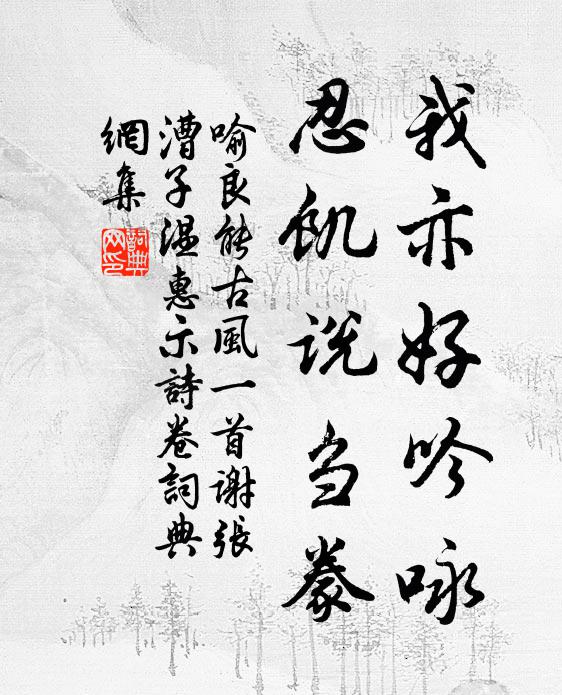 我亦好吟咏
忍飢说刍豢
喻良能古風一首謝張
漕子温惠示詩卷詞典
網集
詞典
网印